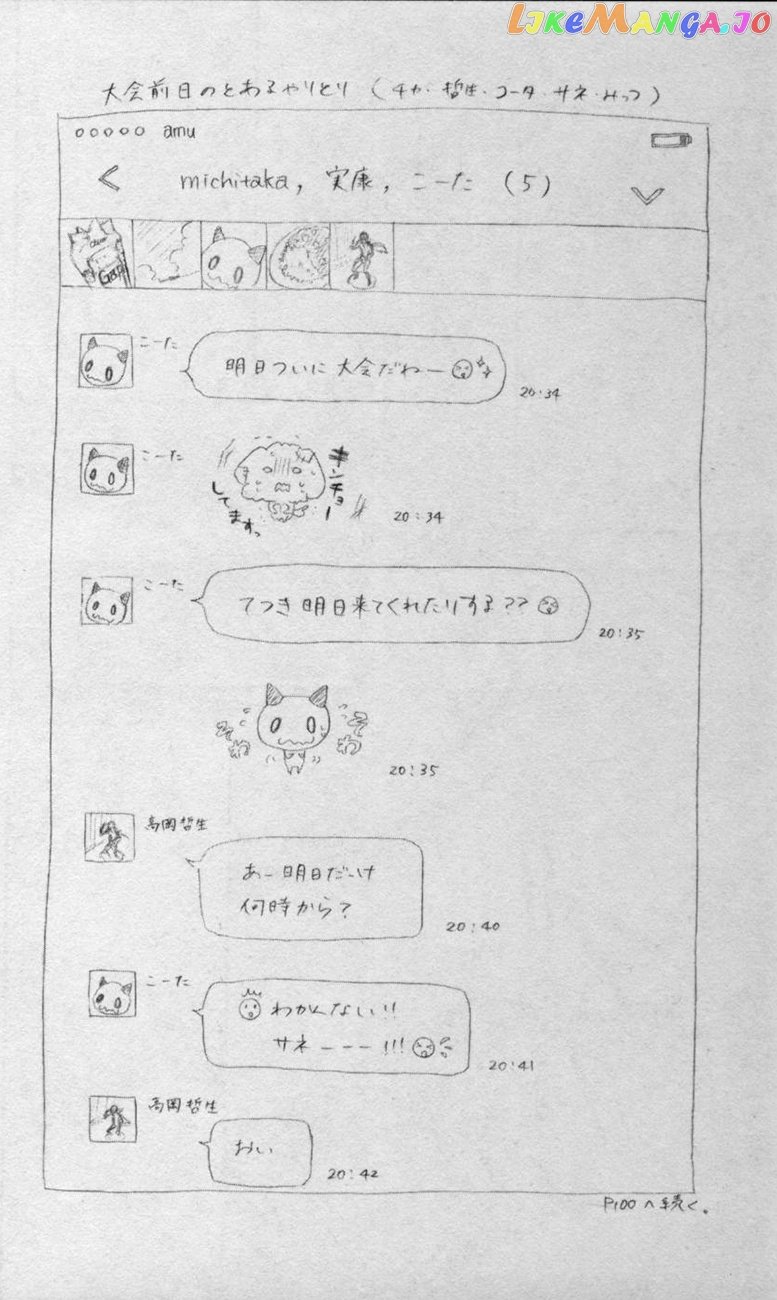 LIKEMANGA.IO
大会前日のとあるやりとり (チカ・哲生・コータ・サネ・みっつ)
amu
michitaka, 実康, こーた (5)
こーた
明日ついに大会だわー
20:34
こーた
キンチョー
してますっ
20:34
こーた
てつき明日来てくれたりする??
20:35
そわ
そわ
20:35
高岡哲生
あー明日だーけ
何時から?
20:40
こーた
わかんない!!
サネーーー!!!
20:41
高岡哲生
おい
20:42
P100へ続く。